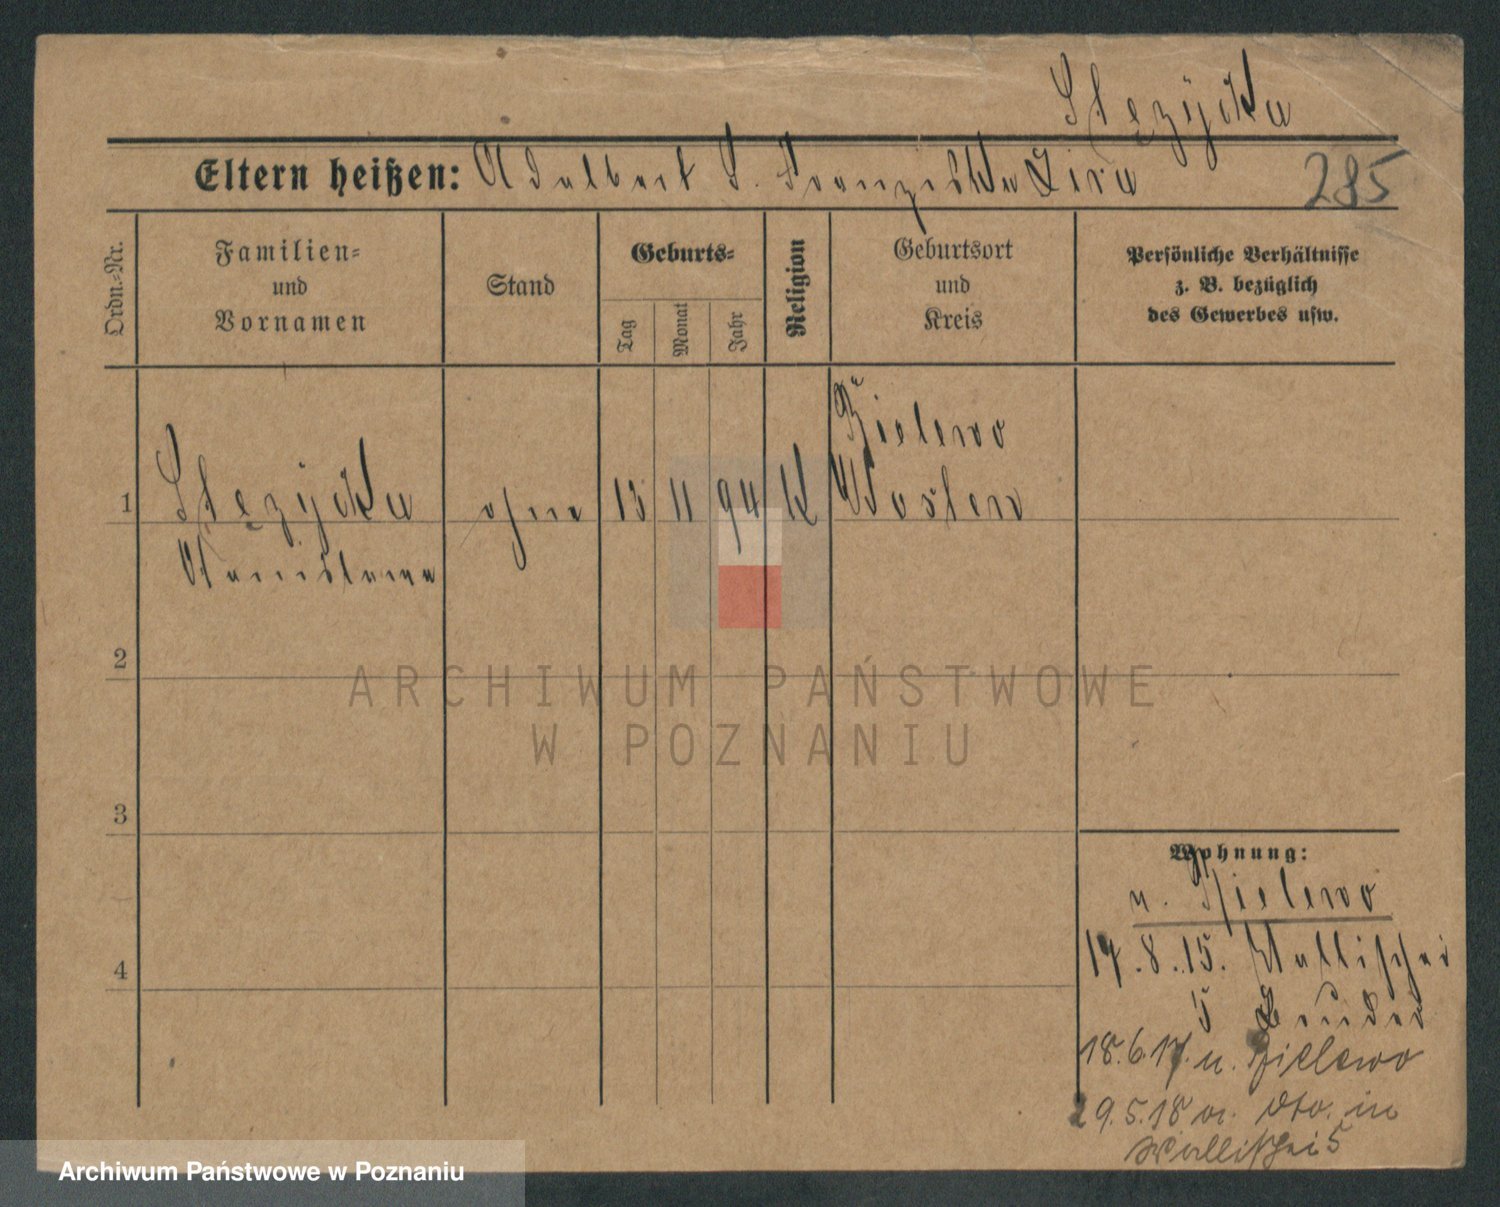 Stęzycka
Eltern heißen: Adalbert S. Franziska Zira
285
Ordn.-Nr.
Familien-
und
Vornamen
Stand
Geburts-
Tag
Monat
Jahr
Religion
Geburtsort
und
Kreis
Persönliche Verhältnisse
z. B. bezüglich
des Gewerbes usw.
1
Stęzycka
Stanislawa
ohne
13
11
94
K
Bielewo
Kosten
2
3
4
Wohnung:
n. Bielewo
17.8.15. Wallischei
5 Bruder
18.6.17. n. Bielewo
29.5.18 v. dto. in
Wallischei 5
ARCHIWUM PAŃSTWOWE
W POZNANIU
Archiwum Państwowe w Poznaniu